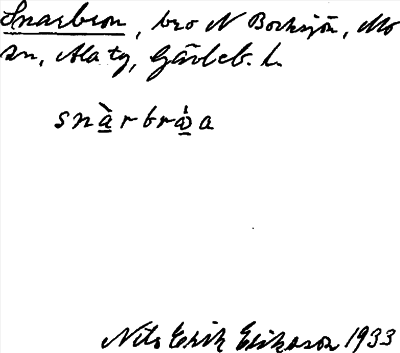 Snarbron, bro N Borksjön, Mo
sn, Ala tg, Gävleb. l.
snàrbrå̀a
Nils Erik Eriksson 1933